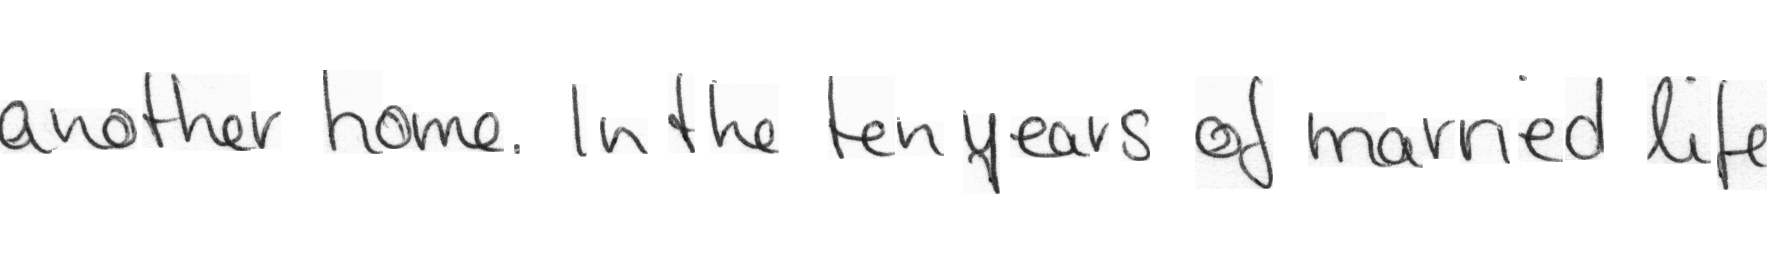 another home. In the ten years of married life